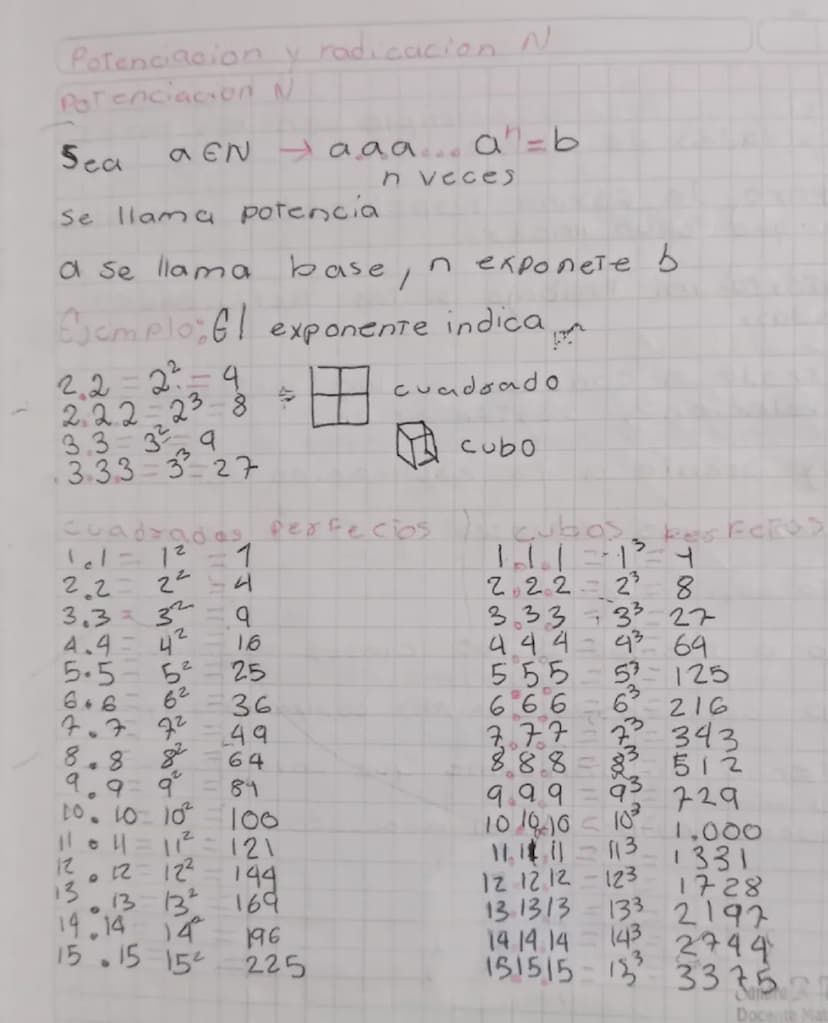 Potenciacion y radicacion N
Potenciacion N
Sea a ∈ N → a.a.a... aⁿ = b
n veces
se llama potencia
a se llama base, n exponete b
Ejemplo: El exponente indica
2.2 = 2² = 4
cuadrado
2.2.2 = 2³ = 8
3.3 = 3² = 9
cubo
3.3.3 = 3³ = 27
cuadrados perfectos
cubos perfetos
1.1 = 1² = 1
2.2 = 2² = 4
3.3 = 3² = 9
4.4 = 4² = 16
5.5 = 5² = 25
6.6 6² = 36
7.7 7² = 49
8.8 8² = 64
9.9 = 9² = 81
10.10 = 10² = 100
11.11 = 11² = 121
12.12 = 12² = 144
13.13 13² = 169
14.14 14² = 196
15.15 15² = 225
1.1.1 = 1³ = 1
2.2.2 = 2³ = 8
3.3.3 = 3³ = 27
4 4 4 = 4³ = 64
5 5 5 = 5³ = 125
6 6 6 = 6³ = 216
7.7.7 = 7³ = 343
8.8.8 = 8³ = 512
9.9.9 = 9³ = 729
10.10.10 = 10³ = 1.000
11.11.11 = 11³ = 1331
12.12.12 = 12³ = 1728
13.13.13 = 13³ = 2197
14.14.14 = 14³ = 2744
15.15.15 = 15³ = 3375